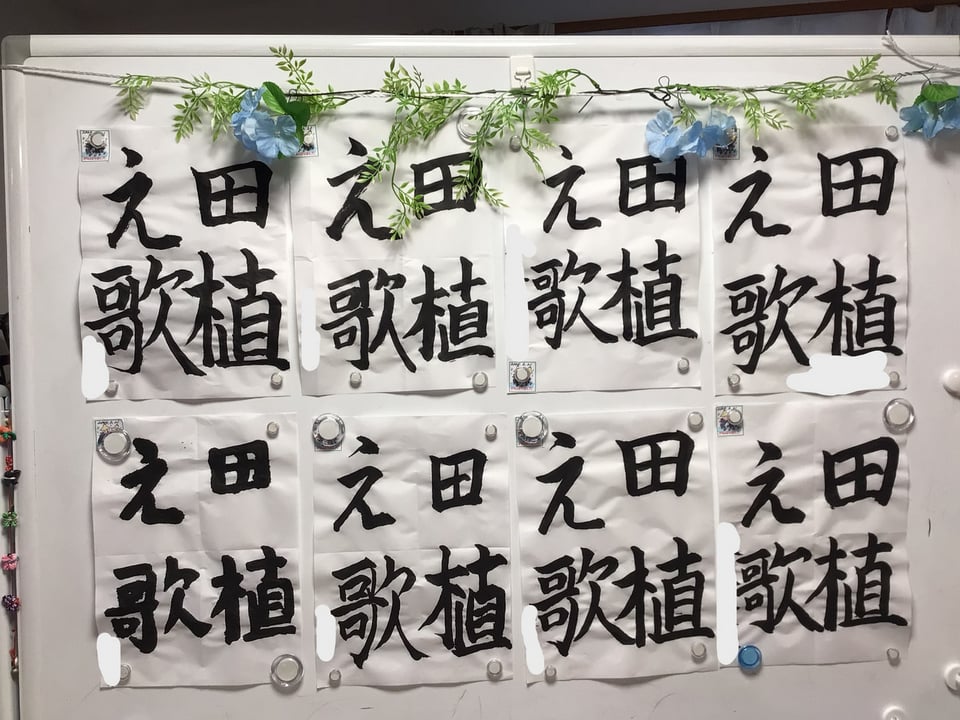 田植
え歌
田植
え歌
田植
え歌
田植
え歌
田植
え歌
田植
え歌
田植
え歌
田植
え歌